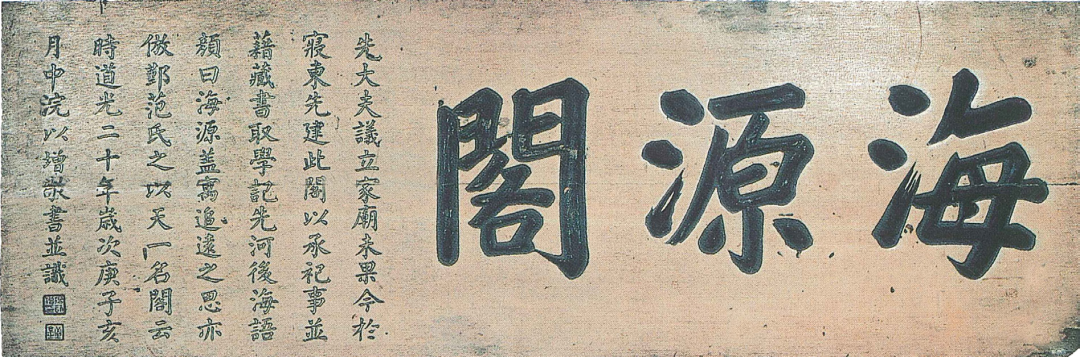 海源閣
先大夫議立家廟未果今於
寢東先建此閣以承祀事並
藉藏書取學記先河後海語
顏曰海源盖寓追遠之思亦
倣鄞范氏之以天一名閣云
時道光二十年歲次庚子亥
月中浣以增榮書並識